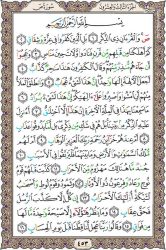 الجزء الثالث والعشرون سورة ص
بِسْمِ ٱللَّهِ ٱلرَّحْمَٰنِ ٱلرَّحِيمِ
صٓ وَٱلْقُرْءَانِ ذِى ٱلذِّكْرِ ١ بَلِ ٱلَّذِينَ كَفَرُوا۟ فِى عِزَّةٍ وَشِقَاقٍ ٢
كَمْ أَهْلَكْنَا مِن قَبْلِهِم مِّن قَرْنٍ فَنَادَوا۟ وَّلَاتَ حِينَ مَنَاصٍ ٣
وَعَجِبُوٓا۟ أَن جَآءَهُم مُّنذِرٌ مِّنْهُمْ وَقَالَ ٱلْكَٰفِرُونَ هَٰذَا سَٰحِرٌ كَذَّابٌ ٤
أَجَعَلَ ٱلْءَالِهَةَ إِلَٰهًا وَٰحِدًا إِنَّ هَٰذَا لَشَىْءٌ عُجَابٌ ٥ وَٱنطَلَقَ ٱلْمَلَأُ
مِنْهُمْ أَنِ ٱمْشُوا۟ وَٱصْبِرُوا۟ عَلَىٰٓ ءَالِهَتِكُمْ إِنَّ هَٰذَا لَشَىْءٌ يُرَادُ ٦
مَا سَمِعْنَا بِهَٰذَا فِى ٱلْمِلَّةِ ٱلْءَاخِرَةِ إِنْ هَٰذَآ إِلَّا ٱخْتِلَٰقٌ ٧ أَءُنزِلَ
عَلَيْهِ ٱلذِّكْرُ مِنۢ بَيْنِنَا بَلْ هُمْ فِى شَكٍّ مِّن ذِكْرِى بَل لَّمَّا يَذُوقُوا۟ عَذَابِ ٨
أَمْ عِندَهُمْ خَزَآئِنُ رَحْمَةِ رَبِّكَ ٱلْعَزِيزِ ٱلْوَهَّابِ ٩ أَمْ لَهُم مُّلْكُ
ٱلسَّمَٰوَٰتِ وَٱلْأَرْضِ وَمَا بَيْنَهُمَا فَلْيَرْتَقُوا۟ فِى ٱلْأَسْبَٰبِ ١٠ جُندٌ مَّا
هُنَالِكَ مَهْزُومٌ مِّنَ ٱلْأَحْزَابِ ١١ كَذَّبَتْ قَبْلَهُمْ قَوْمُ نُوحٍ وَعَادٌ
وَفِرْعَوْنُ ذُو ٱلْأَوْتَادِ ١٢ وَثَمُودُ وَقَوْمُ لُوطٍ وَأَصْحَٰبُ
لْـَٔيْكَةِ أُو۟لَٰٓئِكَ ٱلْأَحْزَابُ ١٣ إِن كُلٌّ إِلَّا كَذَّبَ ٱلرُّسُلَ فَحَقَّ
عِقَابِ ١٤ وَمَا يَنظُرُ هَٰٓؤُلَآءِ إِلَّا صَيْحَةً وَٰحِدَةً مَّا لَهَا
٤٥٣